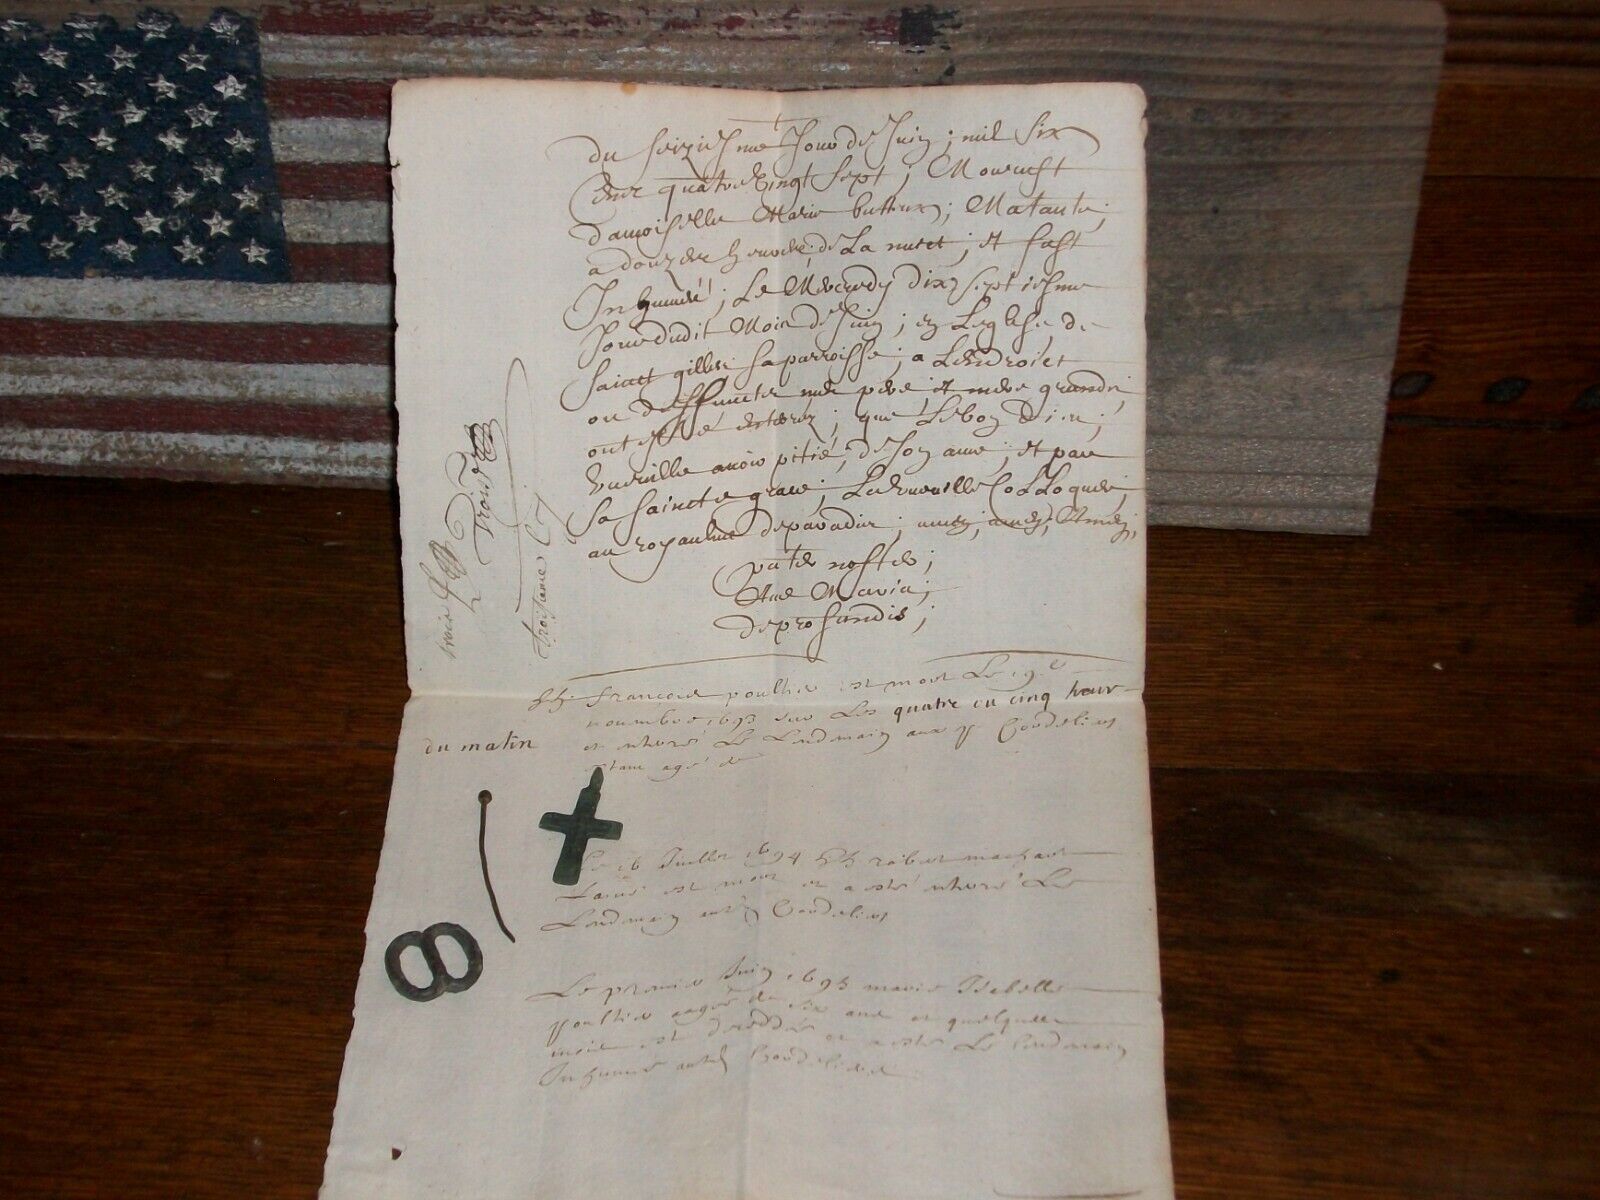 du seiziesme Jour de Juin; mil six
Cent quatre Vingt sept; Mourust
damoiselle Marie butteux; Matante;
a douze heures de La nuict; et fust
Inhumée; Le Mecredy dix septiesme
Jour dudit Mois de Juin; en Leglise de
sainct gilles sa parroisse; a Lendroict
ou deffuncts mes pere et mere grande
ont esté enterez; que Lebon dieu;
Vueille avoir pitié, de son ame, et par
sa saincte grace; La Vueille CoLLoquer;
au royaulme de paradis; amen; amen, Amen;
pater noster;
Ave Maria;
deprofundis;
francois poultier est mort Le 19e
novembre 1693 sur Les quatre ou cinq heur
du matin
et enteré Le Lendmain aux Cordeliers
estant agé de
Le 16 Juillet 1694 robert machart
Laisné est mort et a esté enteré Le
Lendmain aux Cordeliers
Le premier Juin 1693 marie Isabelle
poultier aagée de six ans et quelques
mois est decedée et a esté Le Lendmain
Inhumée aux Cordeliers
trois
Troisiame